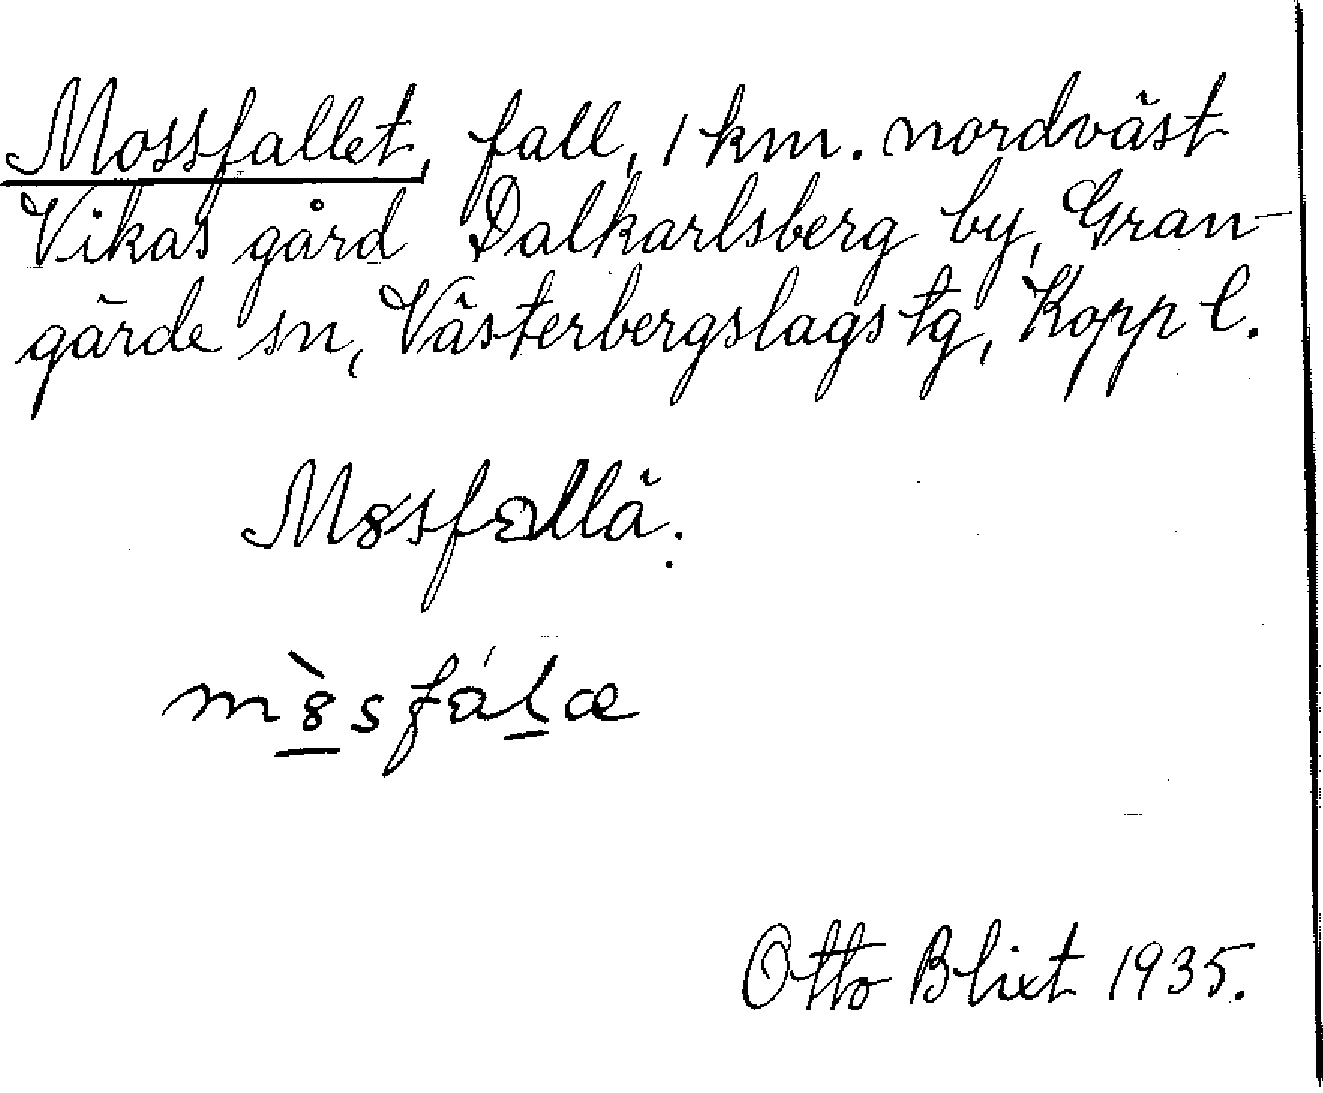 Mossfallet, fall, 1 km. nordväst
Vikas gård Dalkarlsberg by, Gran-
gärde sn, Västerbergslags tg, Kopp l.
Mɞsfɑllä.
mɞ̀sfɑ́læ
Otto Blixt 1935.